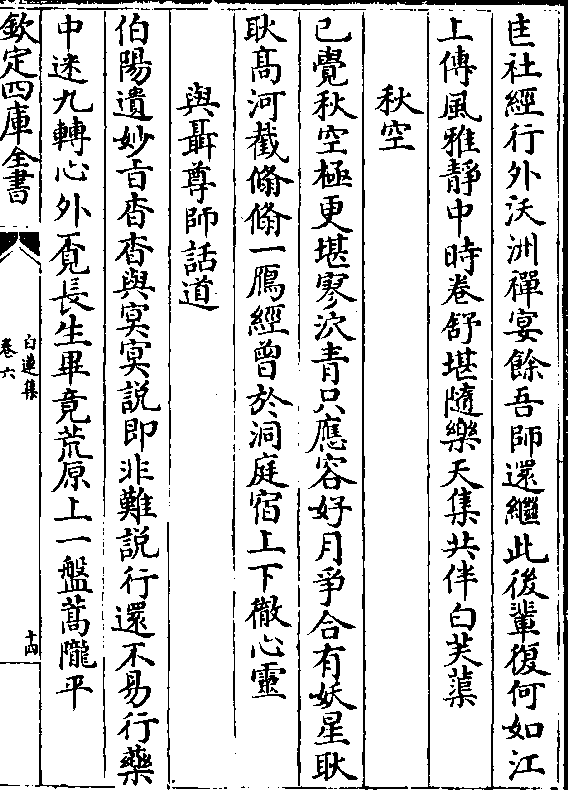 匡社經行外沃洲禪宴餘吾師還繼此後輩復何如江
上傳風雅靜中時卷舒堪隨樂天集共伴白芙蕖
秋空
已覺秋空極更堪寥泬青只應容好月爭合有妖星耿
耿髙河截翛翛一鴈經曾於洞庭宿上下徹心靈
與聶尊師話道
伯陽遺妙旨杳杳與冥冥說即非難說行還不易行藥
中迷九轉心外覔長生畢竟荒原上一盤蒿隴平
欽定四庫全書
白蓮集
卷六
十四